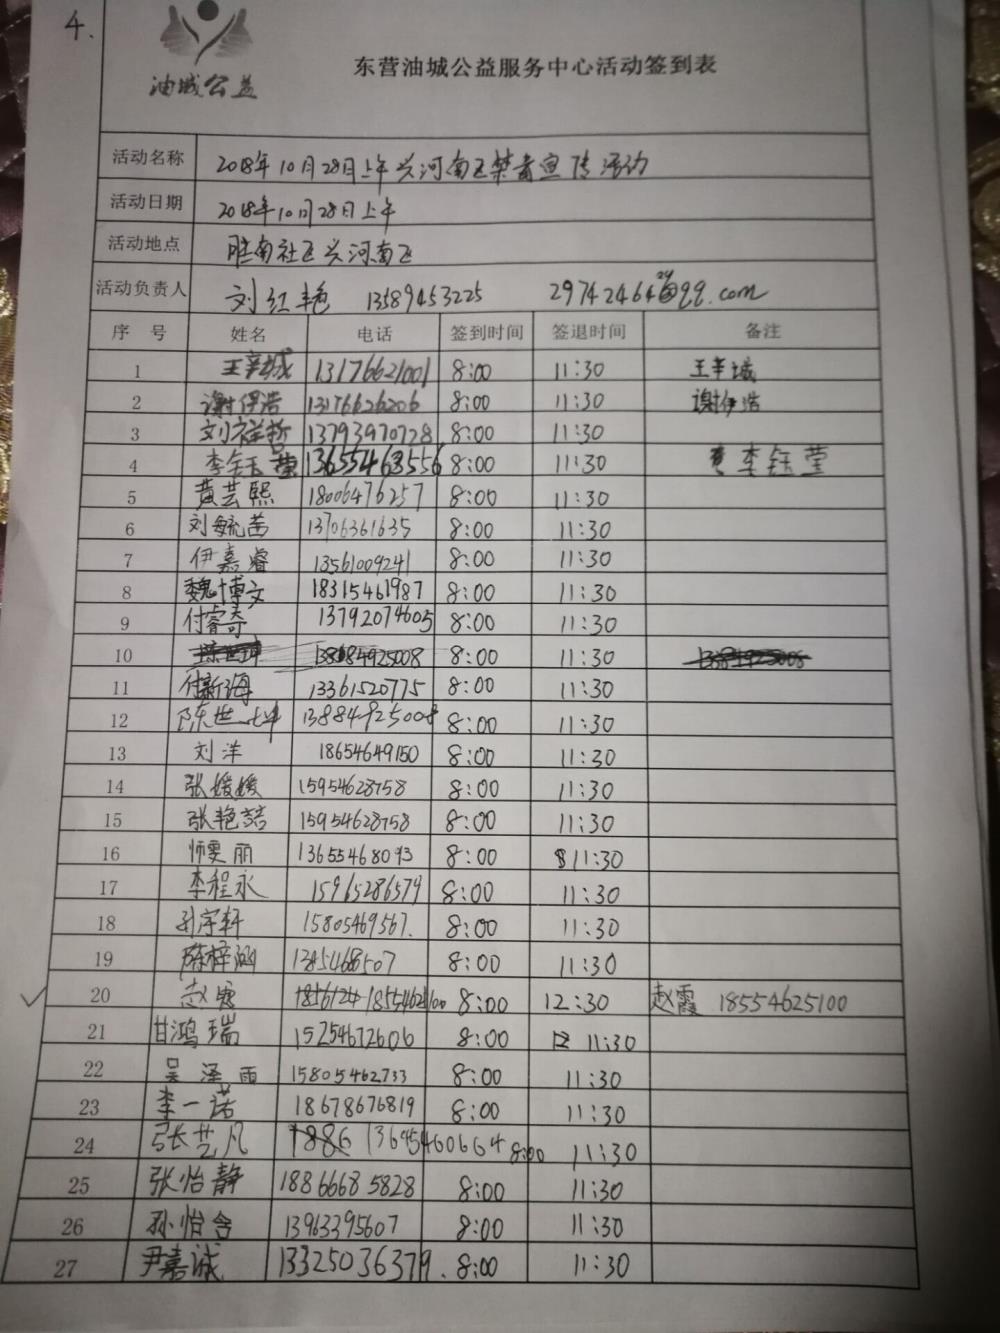 4.
油城公益
东营油城公益服务中心活动签到表
活动名称 2018年10月28日上午兴河南区禁毒宣传活动
活动日期 2018年10月28日上午
活动地点 胜南社区兴河南区
活动负责人 刘红艳 13589453225 297424646@qq.com
序 号 姓名 电话 签到时间 签退时间 备注
1 王辛城 13176621001 8:00 11:30 王辛城
2 谢伊浩 13176626206 8:00 11:30 谢伊浩
3 刘祥哲 13793970728 8:00 11:30
4 李钰莹 13655463556 8:00 11:30 李钰莹
5 黄芸熙 18006476257 8:00 11:30
6 刘毓茜 13706361635 8:00 11:30
7 伊嘉睿 13561009241 8:00 11:30
8 魏博文 18315461987 8:00 11:30
9 付睿奇 13792074605 8:00 11:30
10 8:00 11:30
11 付新海 13361520775 8:00 11:30
12 陈世坤 13884925008 8:00 11:30
13 刘洋 18654649150 8:00 11:30
14 张媛媛 15954628758 8:00 11:30
15 张艳喆 15954628758 8:00 11:30
16 师雯丽 13655468093 8:00 11:30
17 李程永 15965286579 8:00 11:30
18 孙宇轩 15805469567. 8:00 11:30
19 陈梓涵 8:00 11:30
20 赵霞 18554625100 8:00 12:30 赵霞 18554625100
21 甘鸿瑞 15254672606 8:00 11:30
22 吴泽雨 15805462733 8:00 11:30
23 李一诺 18678676819 8:00 11:30
24 张艺凡 13645460664 8:00 11:30
25 张怡静 18866685828 8:00 11:30
26 孙怡含 13963395607 8:00 11:30
27 尹嘉诚 13325036379. 8:00 11:30